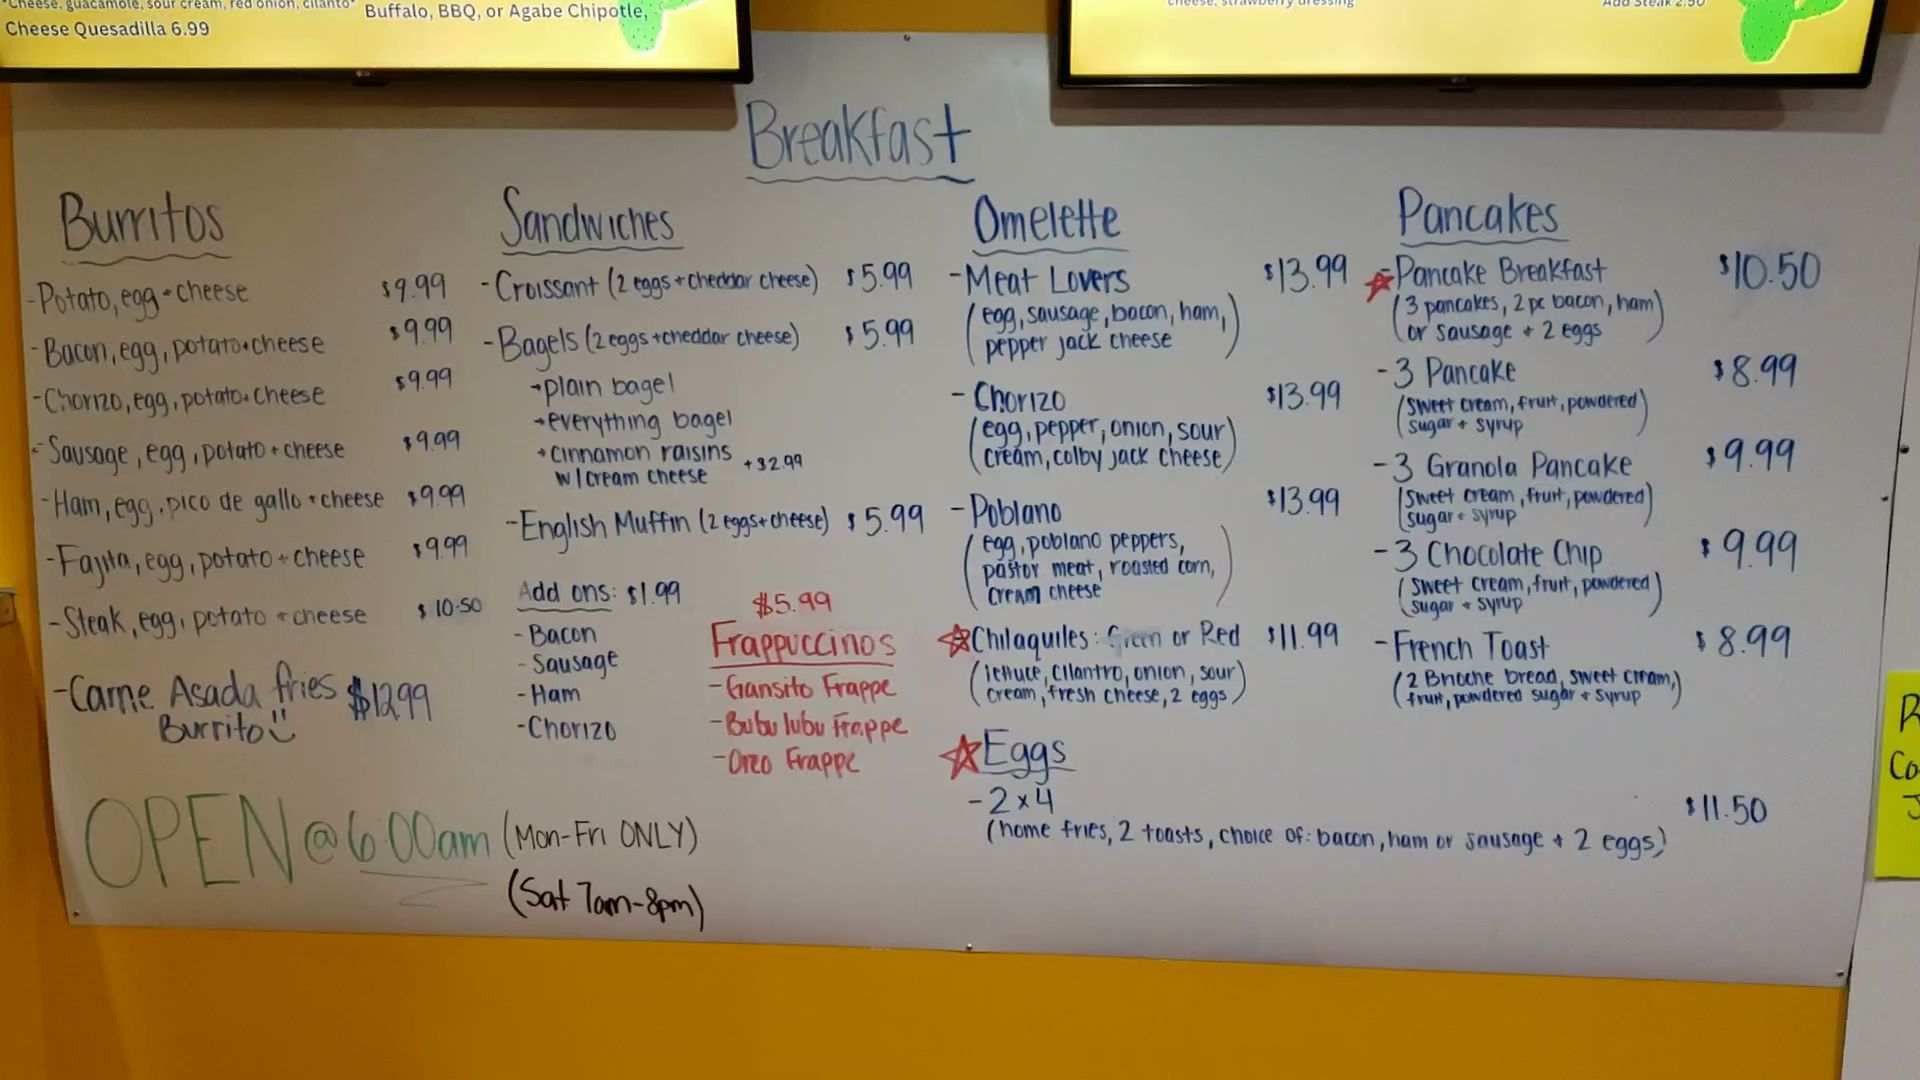 Cheese, guacamole, sour cream, red onion, cilantro*
Cheese Quesadilla 6.99
Buffalo, BBQ, or Agabe Chipotle,
cheese, strawberry dressing
Add Steak 2.50
Breakfast
Burritos
-Potato, egg + cheese $9.99
-Bacon, egg, potato + cheese $9.99
-Chorizo, egg, potato + cheese $9.99
-Sausage, egg, potato + cheese $9.99
-Ham, egg, pico de gallo + cheese $9.99
-Fajita, egg, potato + cheese $9.99
-Steak, egg, potato + cheese $10.50
-Carne Asada fries $12.99
Burrito
OPEN @ 6:00am (Mon-Fri ONLY)
(Sat 7am-8pm)
Sandwiches
-Croissant (2 eggs + cheddar cheese) $5.99
-Bagels (2 eggs + cheddar cheese) $5.99
plain bagel
everything bagel
cinnamon raisins
w/cream cheese +$2.99
-English Muffin (2 eggs + cheese) $5.99
Add ons: $1.99
-Bacon
-Sausage
-Ham
-Chorizo
$5.99
Frappuccinos
-Gansito Frappe
-Bubu lubu Frappe
-Oreo Frappe
Omelette
-Meat Lovers $13.99
(egg, sausage, bacon, ham,
pepper jack cheese)
-Chorizo $13.99
(egg, pepper, onion, sour
cream, colby jack cheese)
-Poblano $13.99
(egg, poblano peppers,
pastor meat, roasted corn,
cream cheese)
Chilaquiles: Green or Red $11.99
(lettuce, cilantro, onion, sour
cream, fresh cheese, 2 eggs)
Eggs
-2x4 $11.50
(home fries, 2 toasts, choice of: bacon, ham or sausage + 2 eggs)
Pancakes
-Pancake Breakfast $10.50
(3 pancakes, 2 pc bacon, ham
or sausage + 2 eggs)
-3 Pancake $8.99
(sweet cream, fruit, powdered
sugar + syrup)
-3 Granola Pancake $9.99
(sweet cream, fruit, powdered
sugar + syrup)
-3 Chocolate Chip $9.99
(sweet cream, fruit, powdered
sugar + syrup)
-French Toast $8.99
(2 Brioche bread, sweet cream,
fruit, powdered sugar + syrup)